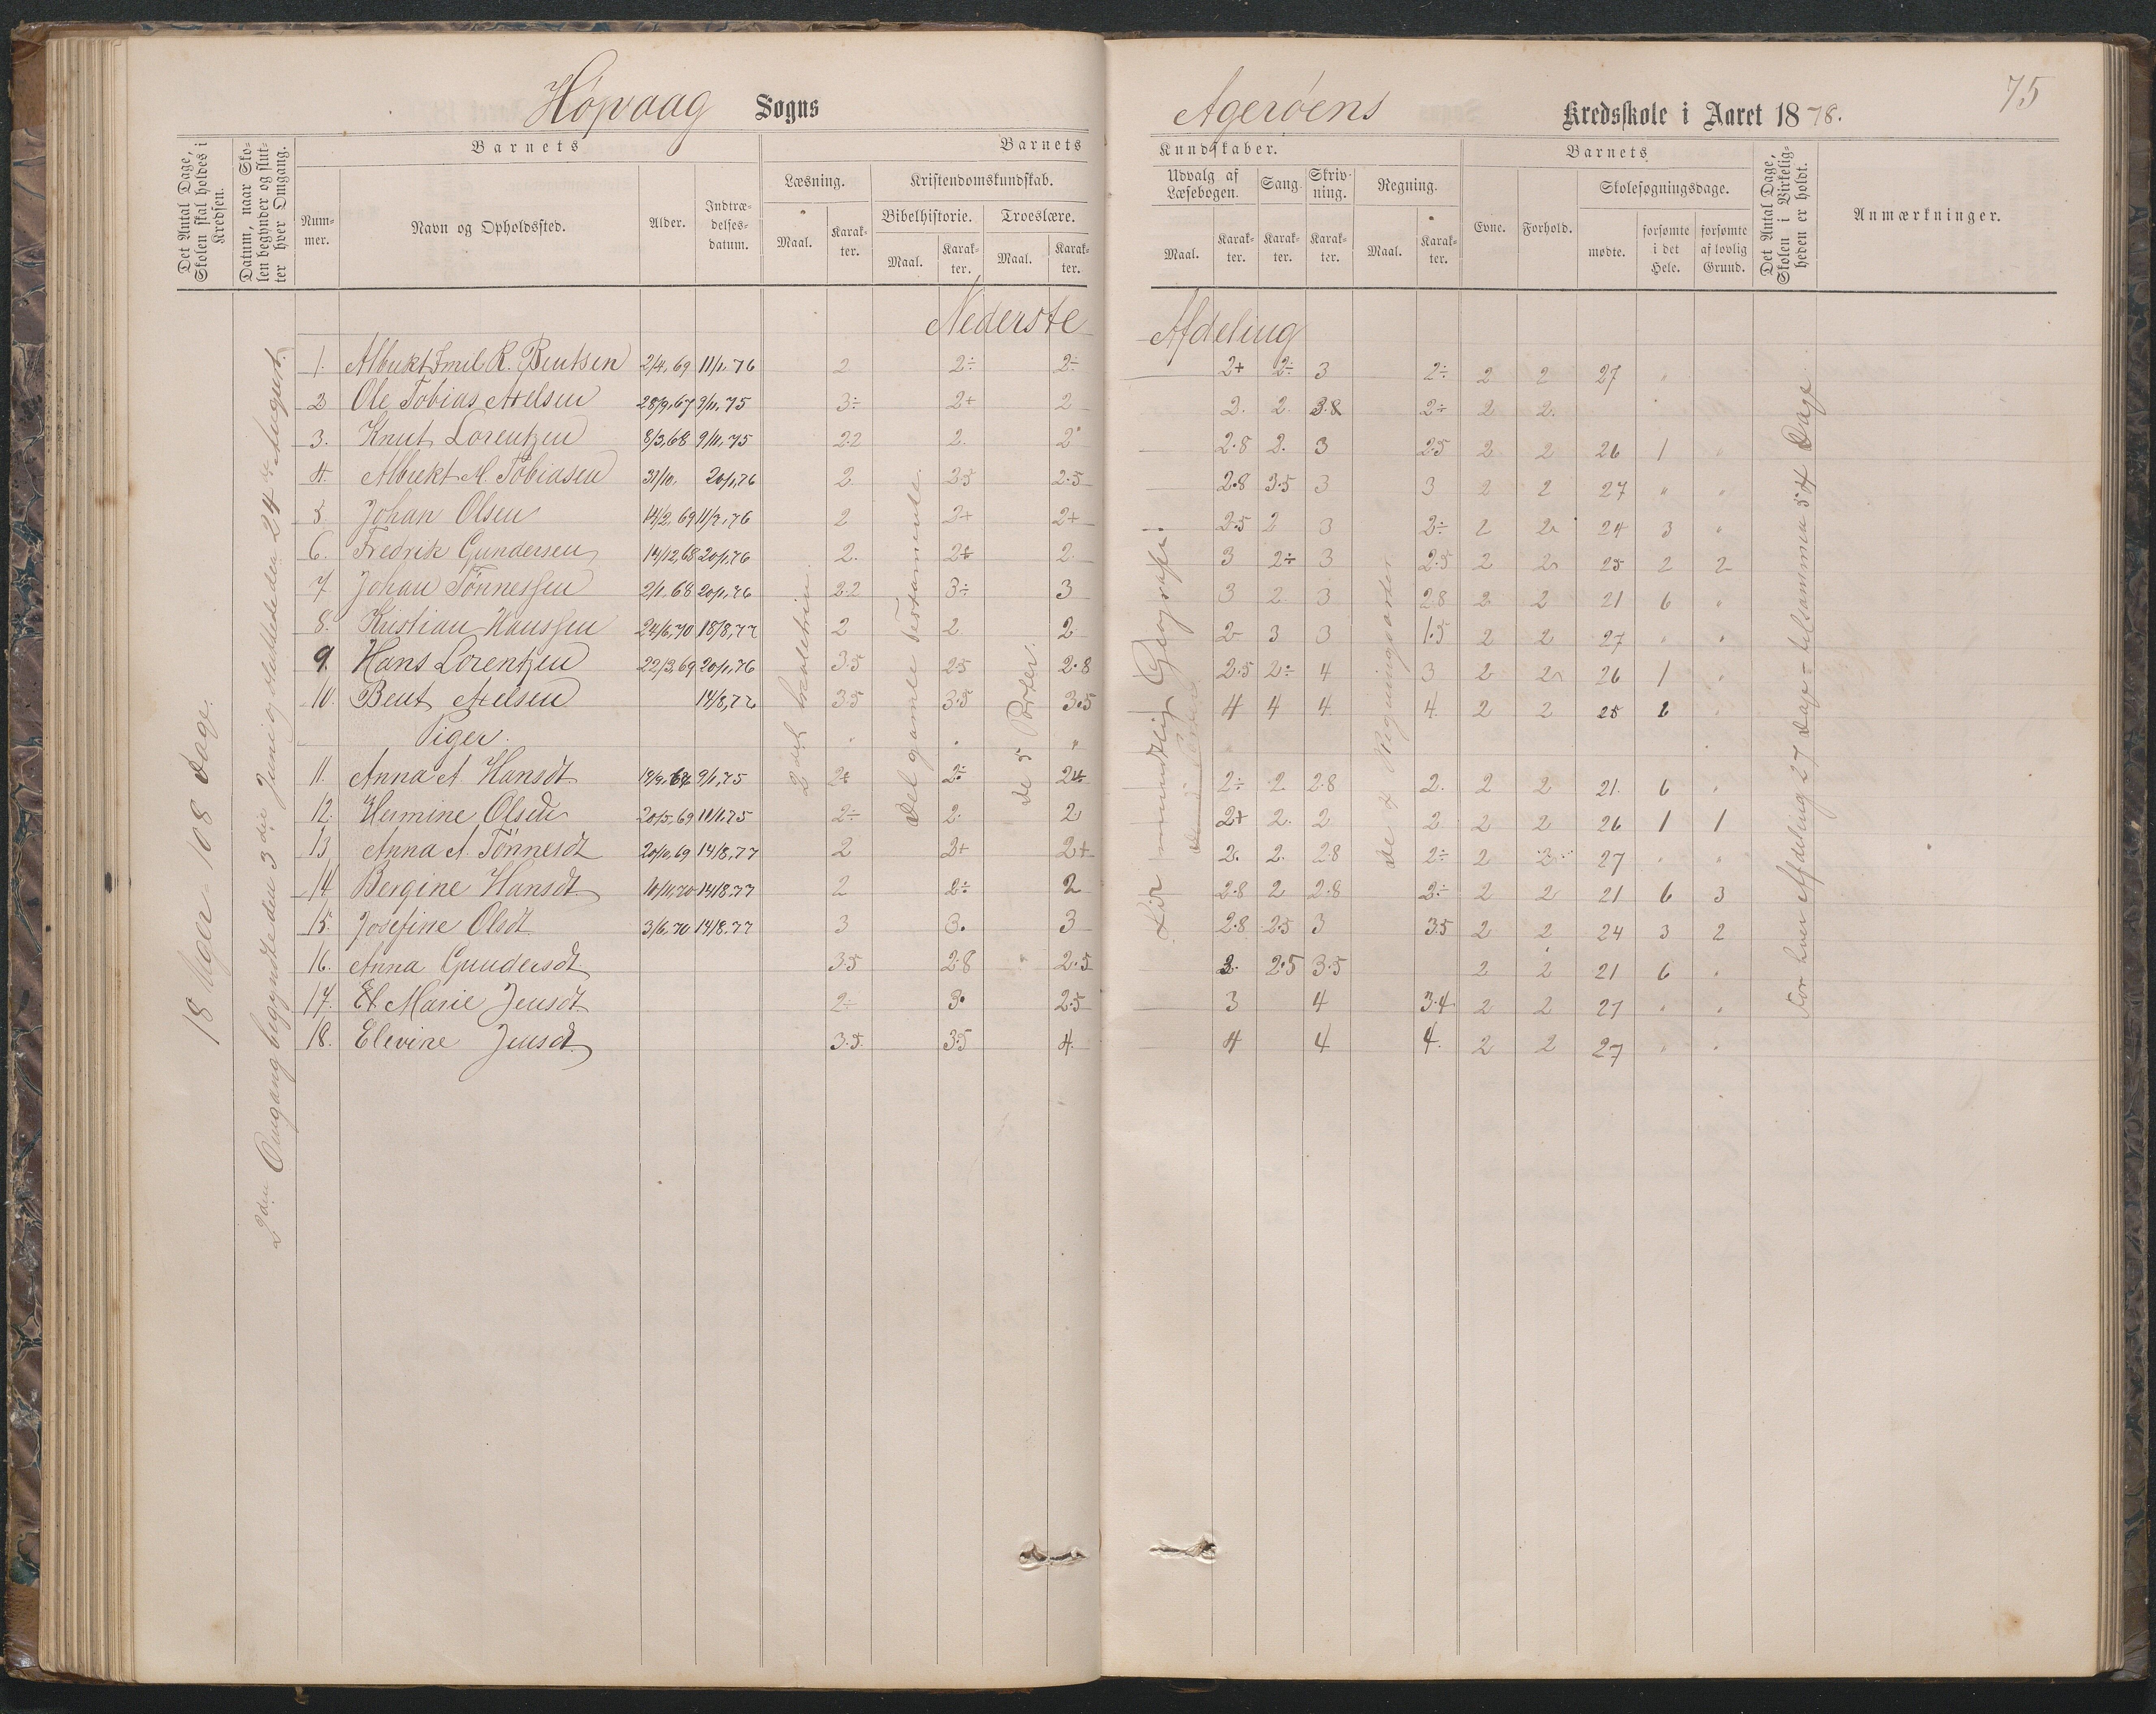 75
Høpvaag Sogns Agerøens Kredsskole i Aaret 1878.
Det Antal Dage, Skolen skal holdes i Kredsen.
Datum, naar Skolen begynder og slutter hver Omgang.
Barnets
Barnets Kundskaber.
Barnets
Det Antal Dage, Skolen i Virkeligheden er holdt.
Anmærkninger.
Nummer. Navn og Opholdssted. Alder. Indtrædelsesdatum.
Læsning. Kristendomskundskab. Udvalg af Læsebogen. Sang. Skrivning. Regning. Evne. Forhold. Skolesøgningsdage.
Bibelhistorie. Troeslære.
Maal. Karakter. Maal. Karakter. Maal. Karakter. Maal. Karakter. Karakter. Karakter. Maal. Karakter. mødte. forsømte i det Hele. forsømte af lovlig Grund.
Nederste Afdeling
18 Uger 108 Dage.
2den Omgang begyndte den 3die Juni og sluttede den 24de August.
2det Læsetrin.
Det gamle Testamente.
de 5 Parter.
Lidt mundtlig Geografi.
de 4 Regningsarter
For hver Afdeling 27 Dage = tilsammen 54 Dage
1. Albrekt Emil R. Bentsen 2/4, 69 11/1, 76 2 2÷ 2÷ 2+ 2÷ 3 2÷ 2 2 27 "
2 Ole Tobias Axelsen 28/9, 67 9/11, 75 3÷ 2+ 2 2. 2. 3.8 2÷ 2 2.
3. Knut Lorentzen 8/3, 68 9/11, 75 2.2 2. 2 2.8 2. 3 2.5 2 2 26 1 "
4. Albrekt M. Tobiasen 31/10, 20/1, 76 2 2.5 2.5 2.8 3.5 3 3 2 2 27 " "
5. Johan Olsen 14/2, 69 11/7, 76 2 2+ 2+ 2.5 2 3 2÷ 2 2 24 3 "
6. Fredrik Gundersen 14/12, 68 20/1, 76 2. 2÷ 2. 3 2÷ 3 2.5 2 2 25 2 2
7 Johan Tönnessen 2/1, 68 20/1, 76 2.2 3÷ 3 3 2 3 2.8 2 2 21 6 "
8. Kristian Hanssen 24/6, 70 18/8, 77 2 2 2 2 3 3 1.5 2 2 27 " "
9. Hans Lorentzen 22/3, 69 20/1, 76 3.5 2.5 2.8 2.5 2÷ 4 3 2 2 26 1 "
10. Bent Axelsen 14/8, 77 3.5 3.5 3.5 4 4 4. 4. 2 2 25 2 "
Piger.
11. Anna A. Hansdt 9/1, 75 2+ 2÷ 2+ 2÷ 2. 2.8 2. 2 2 21. 6 "
12. Hermine Olsdt 20/5, 69 11/1, 75 2÷ 2. 2. 2+ 2. 2 2 2 2 26 1 1
13 Anna A. Tönnesdt 20/10, 69 14/8, 77 2 2+ 2+ 2. 2. 2.8 2÷ 2 2 27 " "
14 Bergine Hansdt. 10/11, 70 14/8. 77 2 2÷ 2 2.8 2 2.8 2÷ 2 2 21 6 3
15. Josefine Olsdt. 3/6, 70 14/8. 77 3 3. 3 2.8 2.5 3 3.5 2 2 24 3 2
16. Anna Gundersdt 3.5 2.8 2.5 3. 2.5 3.5 2 2 21 6 "
17. Marie Jensdt 2÷ 3. 2.5 3 4 3.4 2 2 27 " "
18. Elevine Jensdt. 3.5. 3.5 4. 4 4 4. 2 2 27 " "